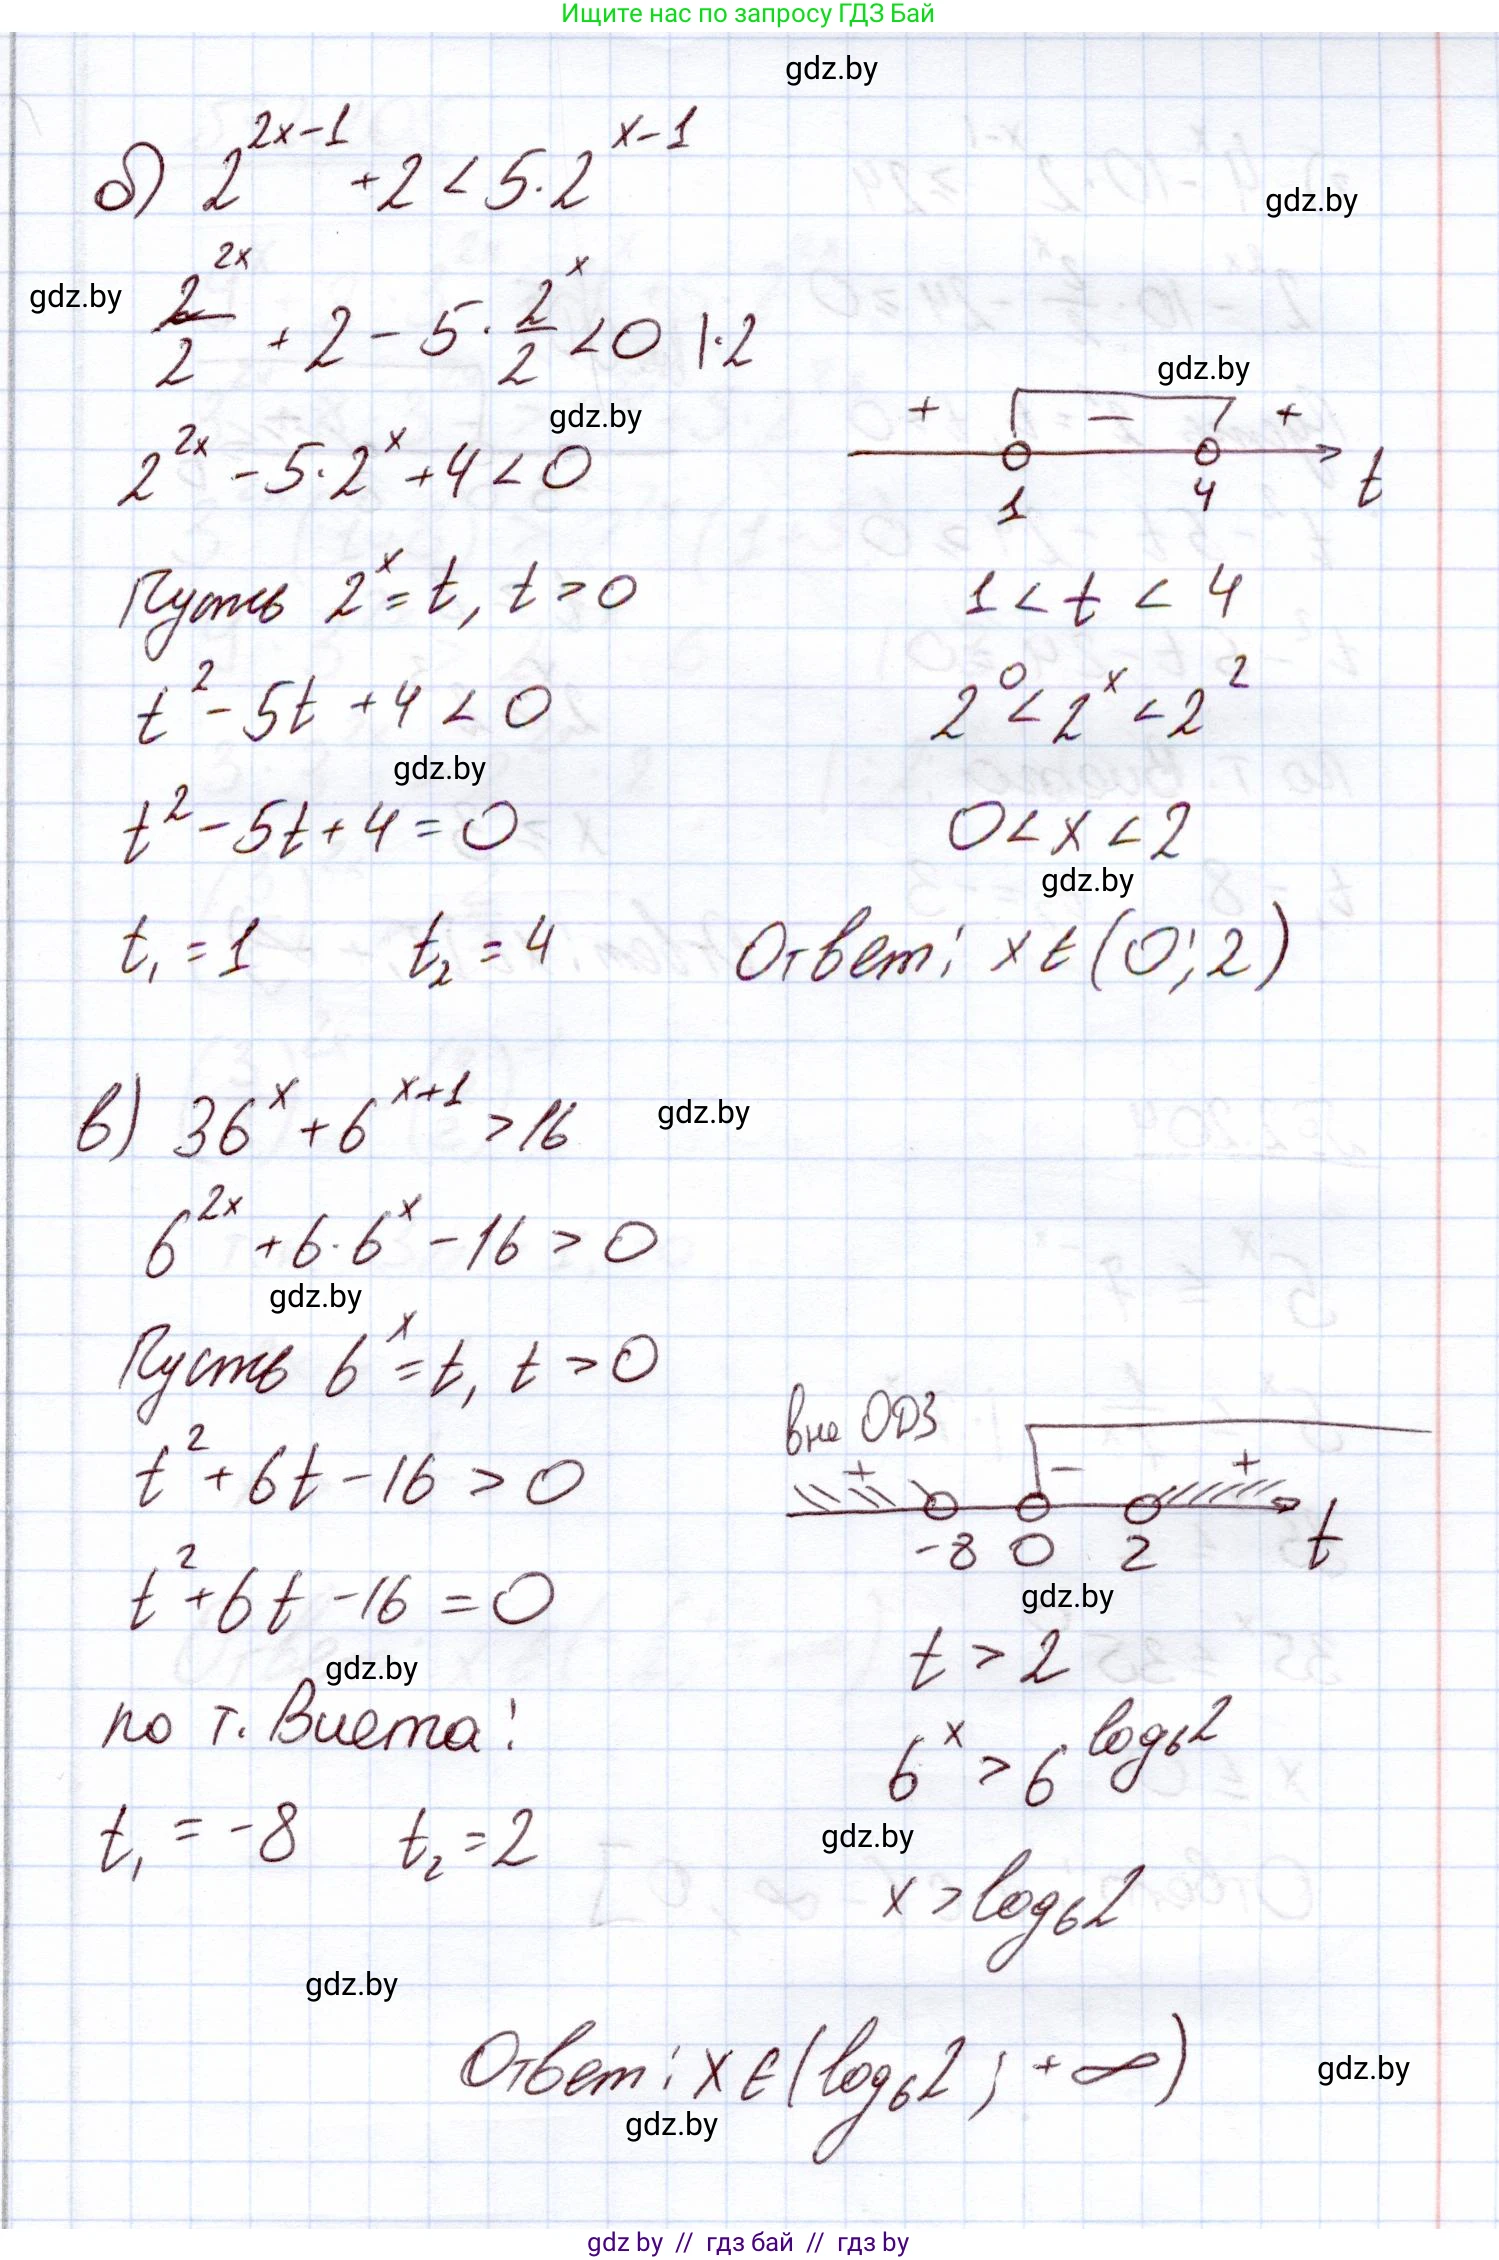 Ищите нас по запросу ГДЗ Бай
gdz.by
б) 2^(2x-1) + 2 < 5·2^(x-1)
gdz.by
gdz.by
2^(2x)/2 + 2 - 5·2^x/2 < 0 |·2
gdz.by
gdz.by
2^(2x) - 5·2^x + 4 < 0
+ - +
1 4 t
Пусть 2^x = t, t > 0
1 < t < 4
t² - 5t + 4 < 0
2^0 < 2^x < 2^2
gdz.by
t² - 5t + 4 = 0
0 < x < 2
gdz.by
t₁ = 1 t₂ = 4
Ответ: x ∈ (0; 2)
в) 36^x + 6^(x+1) > 16
gdz.by
6^(2x) + 6·6^x - 16 > 0
gdz.by
Пусть 6^x = t, t > 0
вне ОДЗ
t² + 6t - 16 > 0
+ - +
-8 0 2 t
t² + 6t - 16 = 0
gdz.by
gdz.by
t > 2
по т. Виета:
6^x > 6^(log₆2)
t₁ = -8 t₂ = 2
gdz.by
x > log₆2
gdz.by
Ответ: x ∈ (log₆2; +∞)
gdz.by
gdz.by
gdz by // гдз бай // гдз by